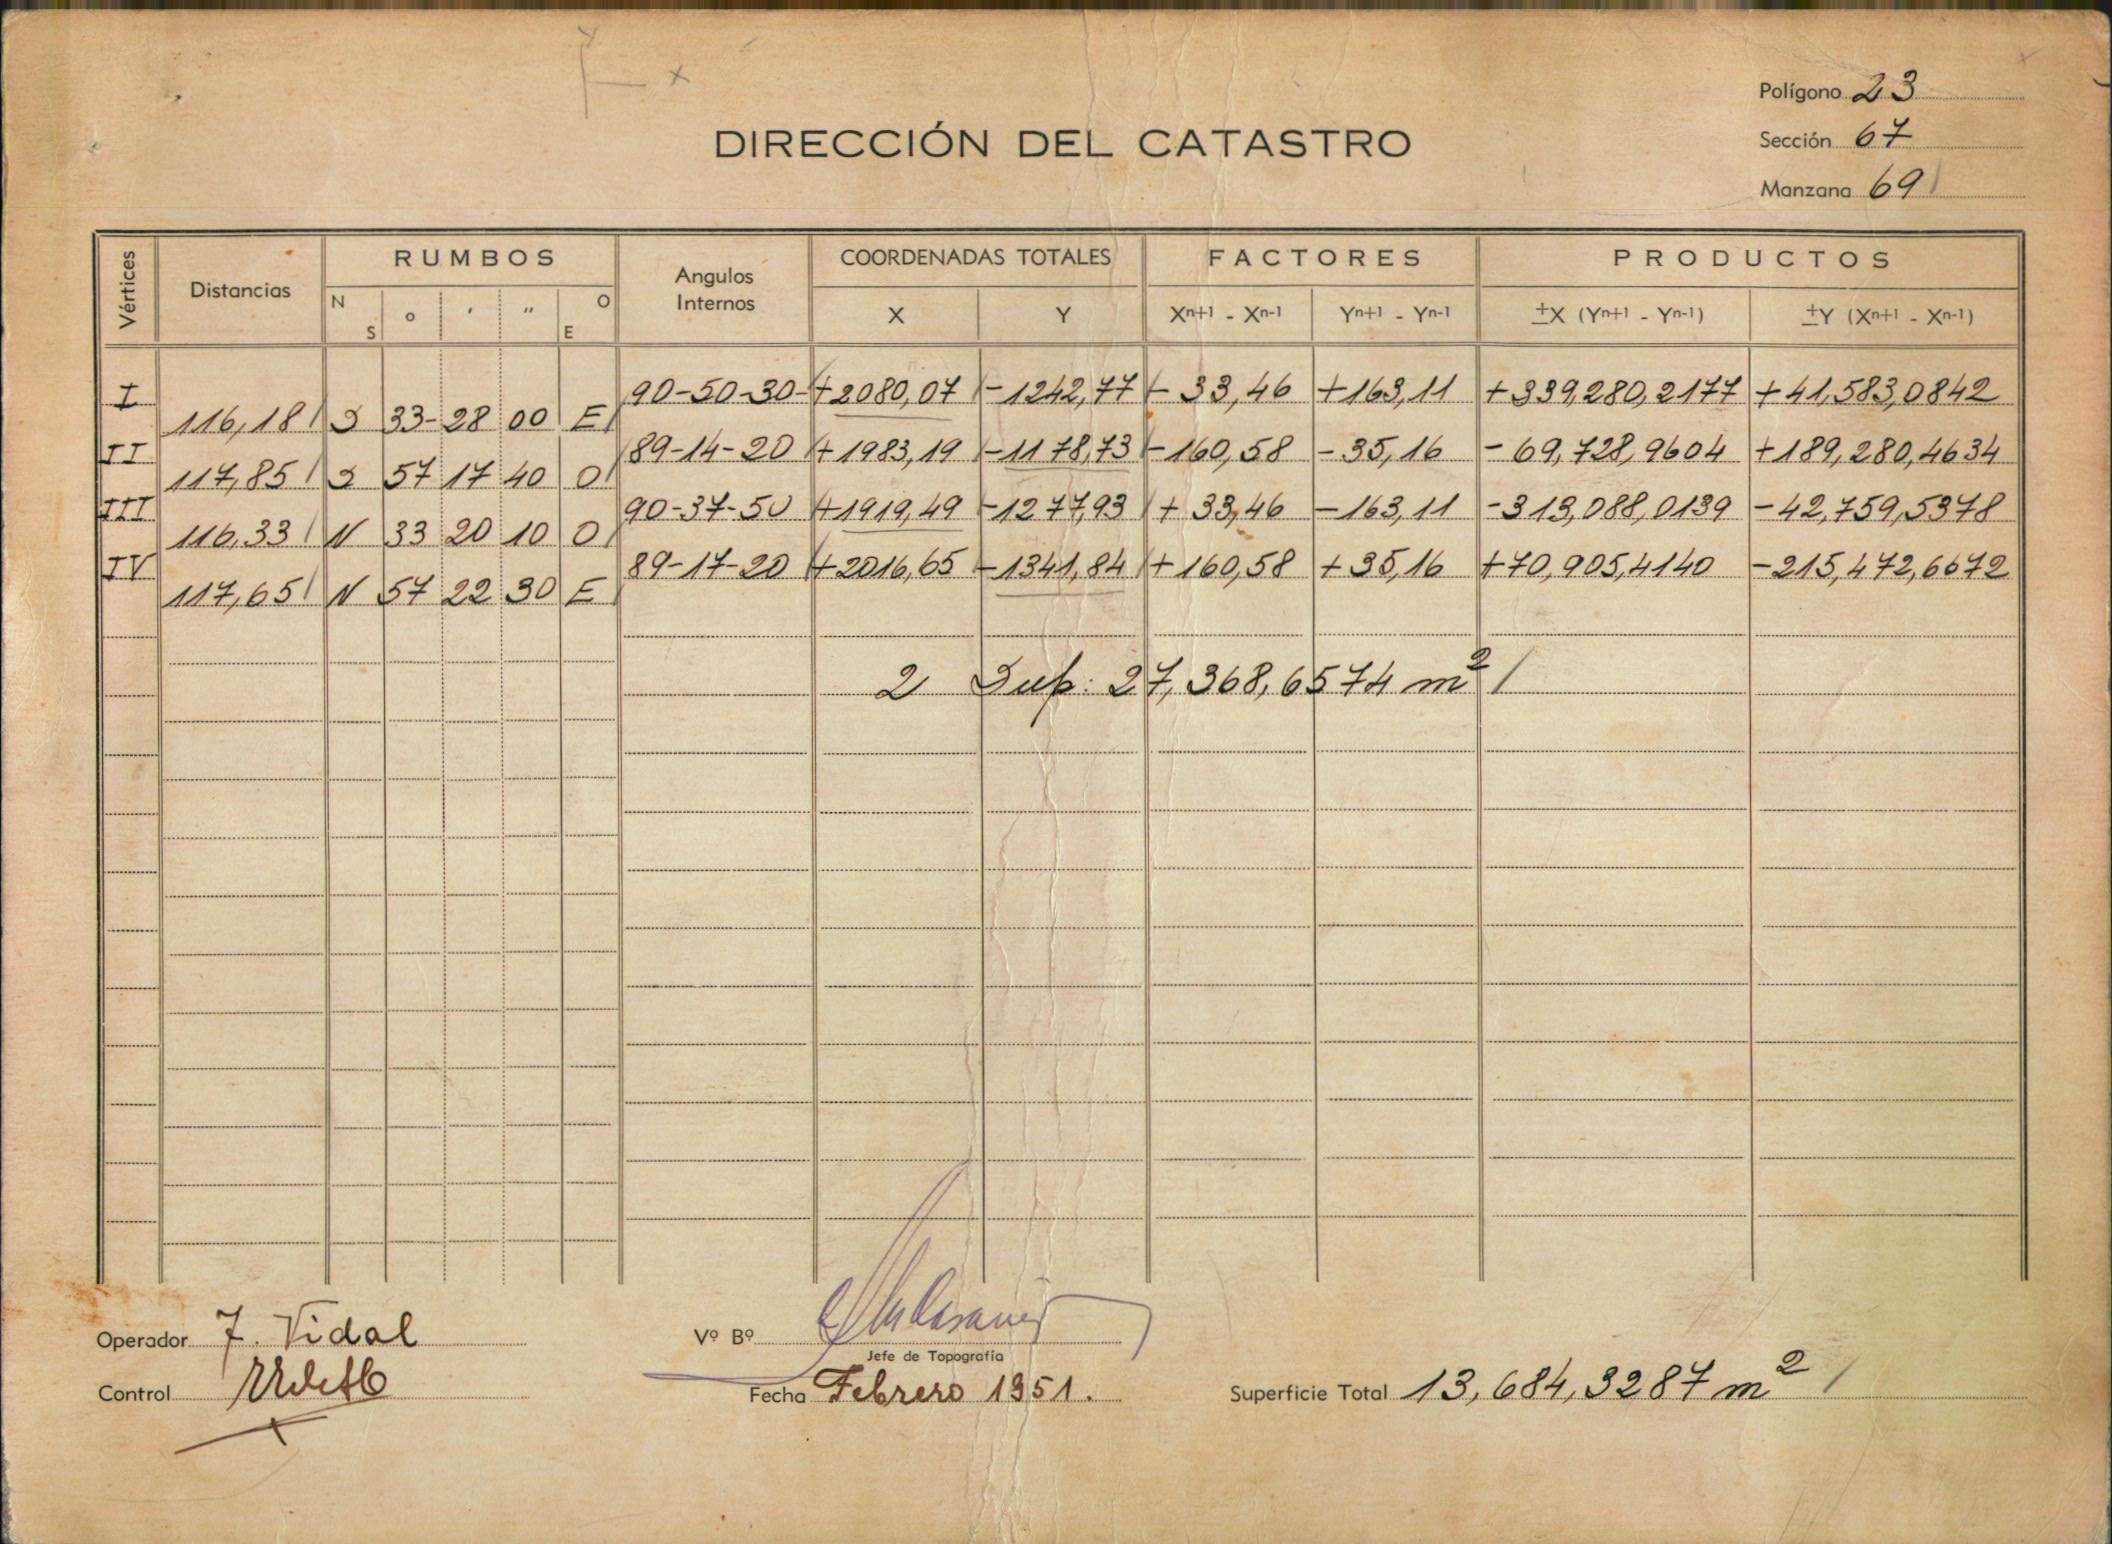 Polígono 23
DIRECCIÓN DEL CATASTRO
Sección 67
Manzana 69
Vértices Distancias RUMBOS Angulos Internos COORDENADAS TOTALES FACTORES PRODUCTOS
N S o ' " O E X Y Xn+1 - Xn-1 Yn+1 - Yn-1 ±X (Yn+1 - Yn-1) ±Y (Xn+1 - Xn-1)
I 90-50-30 +2080,07 -1242,77 - 33,46 +163,11 +339,280,2177 +41,583,0842
116,18 S 33-28 00 E
II 89-14-20 +1983,19 -1178,73 -160,58 -35,16 -69,728,9604 +189,280,4634
117,85 S 57 17 40 O
III 90-37-50 +1919,49 -1277,93 + 33,46 -163,11 -313,088,0139 -42,759,5378
116,33 N 33 20 10 O
IV 89-17-20 +2016,65 -1341,84 +160,58 +35,16 +70,905,4140 -215,472,6672
117,65 N 57 22 30 E
2 Sup: 27,368,6574 m²
Operador F. Vidal Vº Bº
Jefe de Topografía
Control Fecha Febrero 1951. Superficie Total 13,684,3287 m²